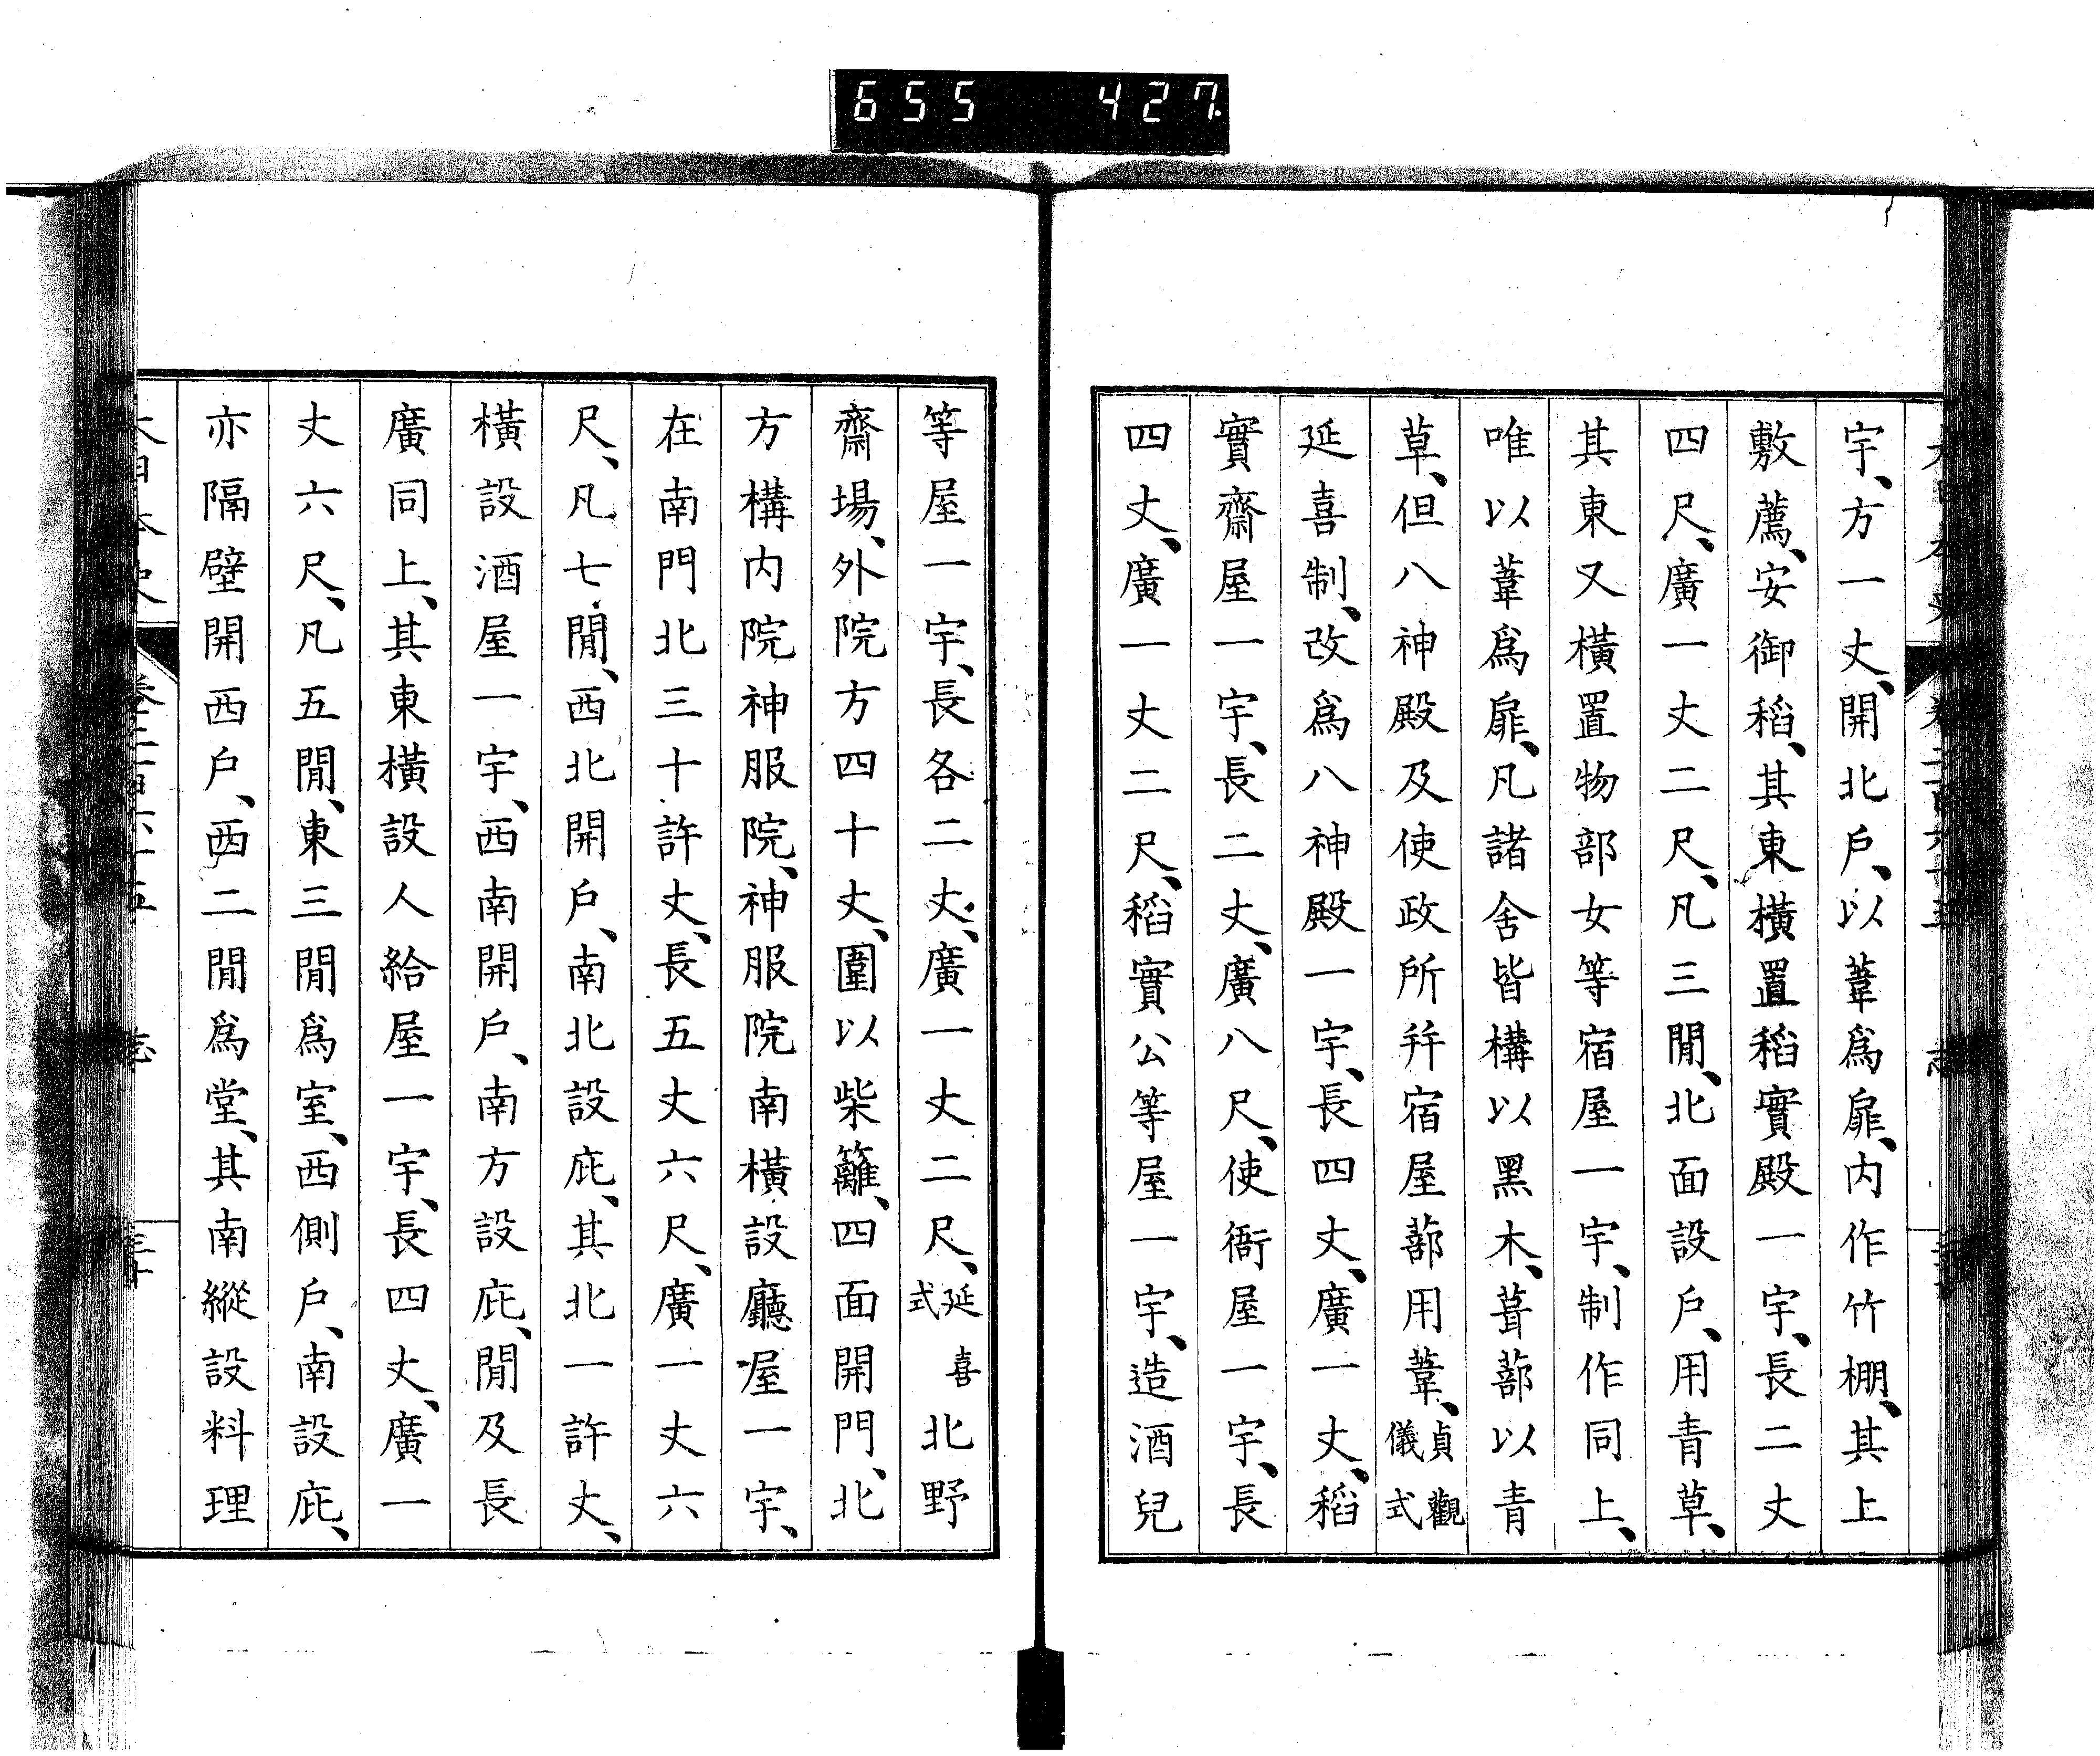 655 427
宇、方一丈、開北戶、以葦爲扉、内作竹棚、其上
敷薦、安御稻、其東橫置稻實殿一宇、長二丈
四尺、廣一丈二尺、凡三閒、北面設戶、用青草、
其東又橫置物部女等宿屋一宇、制作同上、
唯以葦爲扉、凡諸舍皆構以黑木、葺蔀以青
草、但八神殿及使政所幷宿屋蔀用葦、貞觀儀式
延喜制、改爲八神殿一宇、長四丈、廣一丈、稻
實齋屋一宇、長二丈、廣八尺、使衙屋一宇、長
四丈、廣一丈二尺、稻實公等屋一宇、造酒兒
等屋一宇、長各二丈、廣一丈二尺、延喜式北野
齋場、外院方四十丈、圍以柴籬、四面開門、北
方構内院神服院、神服院南橫設廳屋一宇、
在南門北三十許丈、長五丈六尺、廣一丈六
尺、凡七閒、西北開戶、南北設庇、其北一許丈、
橫設酒屋一宇、西南開戶、南方設庇、閒及長
廣同上、其東橫設人給屋一宇、長四丈、廣一
丈六尺、凡五閒、東三閒爲室、西側戶、南設庇、
亦隔壁開西戶、西二閒爲堂、其南縱設料理
大日本史 卷二百六十五 志